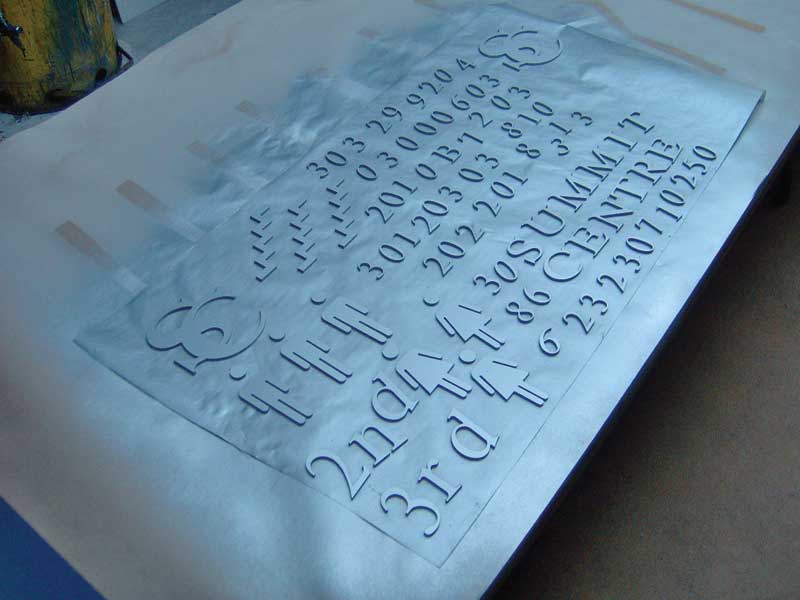 303 29 9204
03 000 603
2010B1 203
301203 03 810
202 201 8 313
30 SUMMIT
86 CENTRE
6 23230710250
2nd
3rd